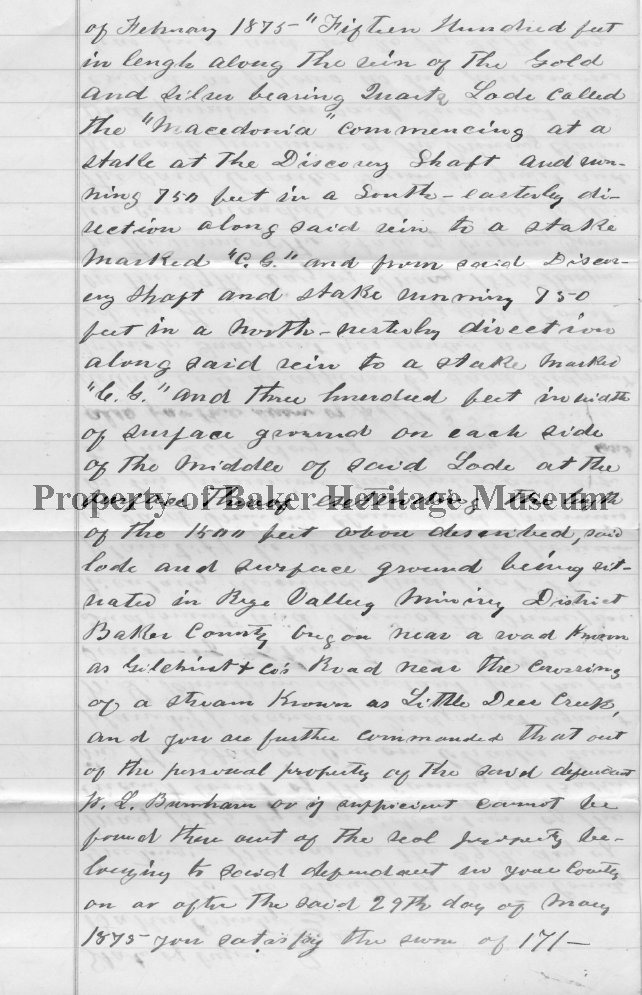 of February 1875- "Fifteen Hundred feet
in lengh along the vein of the Gold
and silver bearing Quartz Lode called
the "Macedonia" commencing at a
stake at the Discovery Shaft and run-
ning 750 feet in a South-easterly di-
rection along said vein to a stake
marked "C. G." and from said Discov-
ery Shaft and stake running 750
feet in a North-westerly direction
along said vein to a stake marked
"C. G." and three hundred feet in width
of surface ground on each side
of the middle of said Lode at the
Property of Baker Heritage Museum
surface thereof extending the
of the 1500 feet above described, said
lode and surface ground being sit-
uated in Rye Valley Mining District
Baker County Oregon near a road Known
as Gilchrist & Co's Road near the Crossing
of a stream Known as Little Deer Creek,
and you are further commanded that out
of the personal property of the said defendant
W. L. Burnham or if sufficient cannot be
found then out of the real property be-
longing to said defendant in your County
on or after the said 29th day of May
1875- you satisfy the sum of 171-